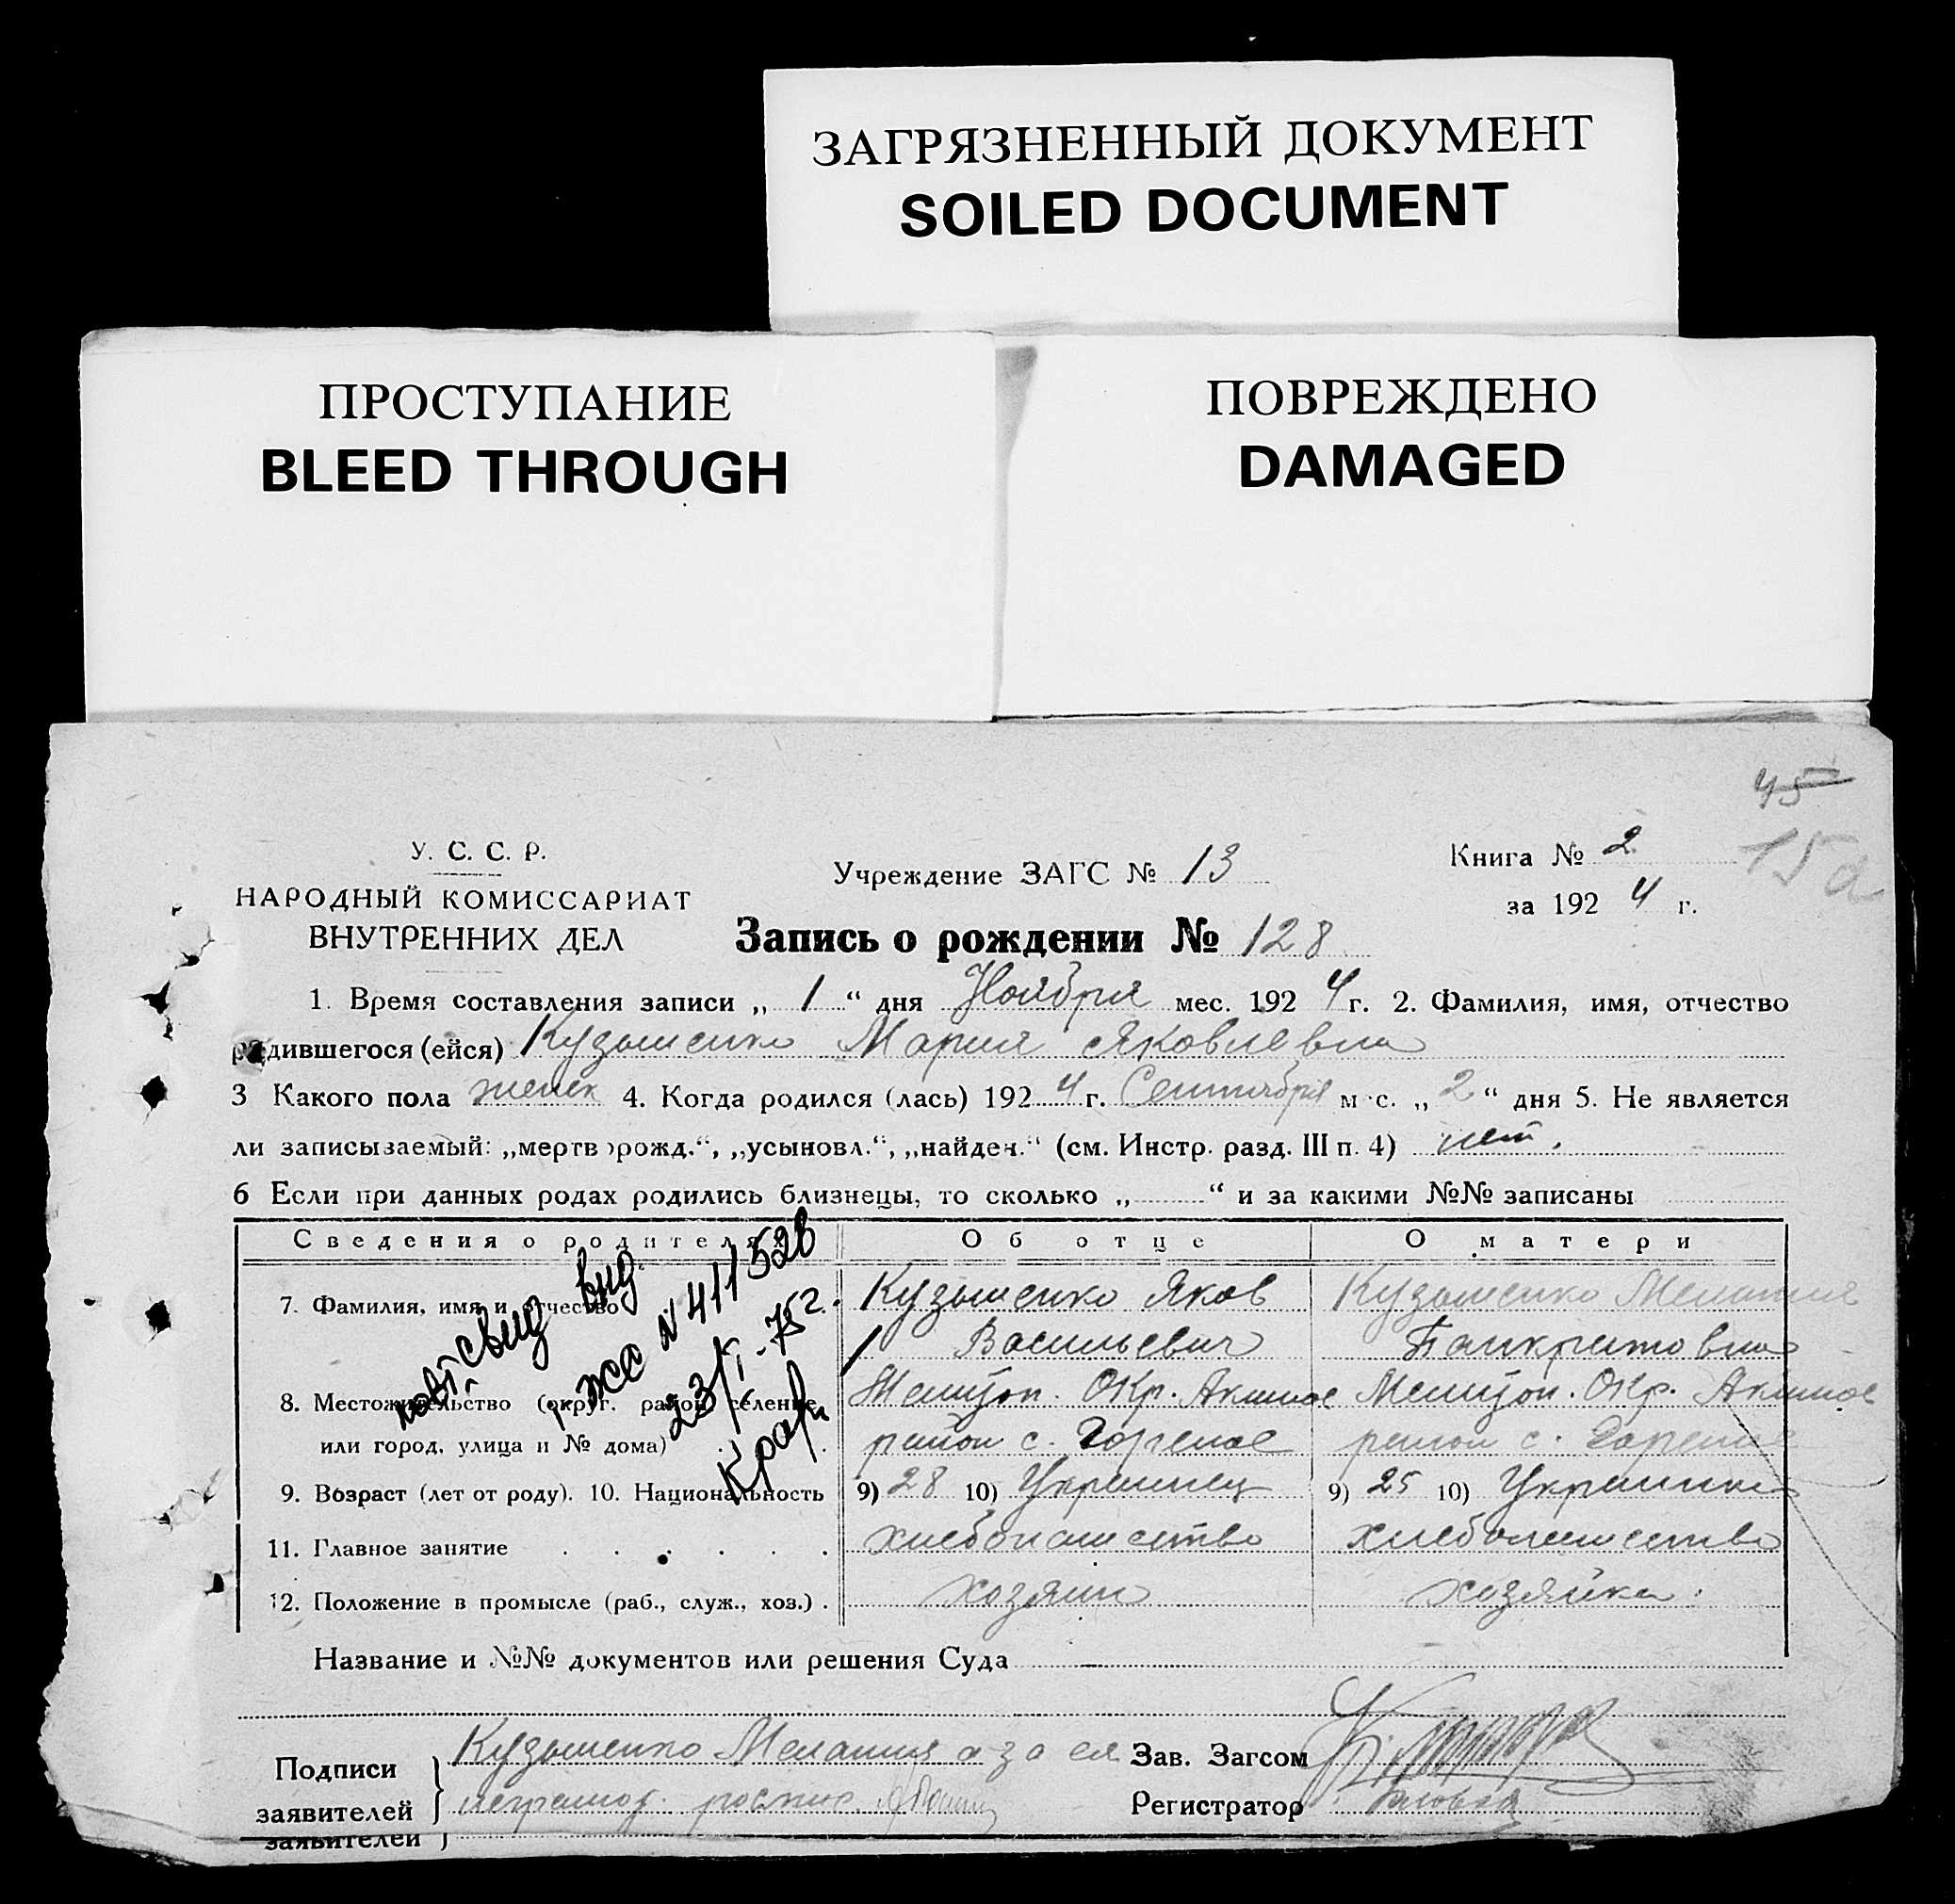 ЗАГРЯЗНЕННЫЙ ДОКУМЕНТ
SOILED DOCUMENT
ПРОСТУПАНИЕ
BLEED THROUGH
ПОВРЕЖДЕНО
DAMAGED
45
15а
У. С. С. Р.
НАРОДНЫЙ КОМИССАРИАТ
ВНУТРЕННИХ ДЕЛ
Учреждение ЗАГС № 13
Книга № 2
за 1924 г.
Запись о рождении № 128
1. Время составления записи „ 1 “ дня Ноября мес. 1924 г. 2. Фамилия, имя, отчество
родившегося (ейся) Кузьменко Мария Яковлевна
3 Какого пола женск 4. Когда родился (лась) 1924 г. Сентября м с. „ 2 “ дня 5. Не является
ли записываемый: „мертворожд.“, „усыновл.“, „найден.“ (см. Инстр. разд. III п. 4) нет.
6 Если при данных родах родились близнецы, то сколько „ “ и за какими №№ записаны
Сведения о родителях Об отце О матери
7. Фамилия, имя и отчество Кузьменко Яков Кузьменко Мелания
Васильевич Панкратовна
8. Местожительство (округ. район селение, Мелитоп. Окр. Акимов Мелитоп. Окр. Акимов
или город, улица и № дома) район с. Горелое район с. Горелое
9. Возраст (лет от роду). 10. Национальность 9) 28 10) Украинец 9) 25 10) Украинка
11. Главное занятие хлебопашество хлебопашество
12. Положение в промысле (раб., служ., хоз.) хозяин хозяйка
свид вид
№ 411528
23/I-75г.
Название и №№ документов или решения Суда
Подписи
заявителей
Кузьменко Мелания а за ея
неграмот. роспис.
Зав. Загсом
Регистратор
заявителей